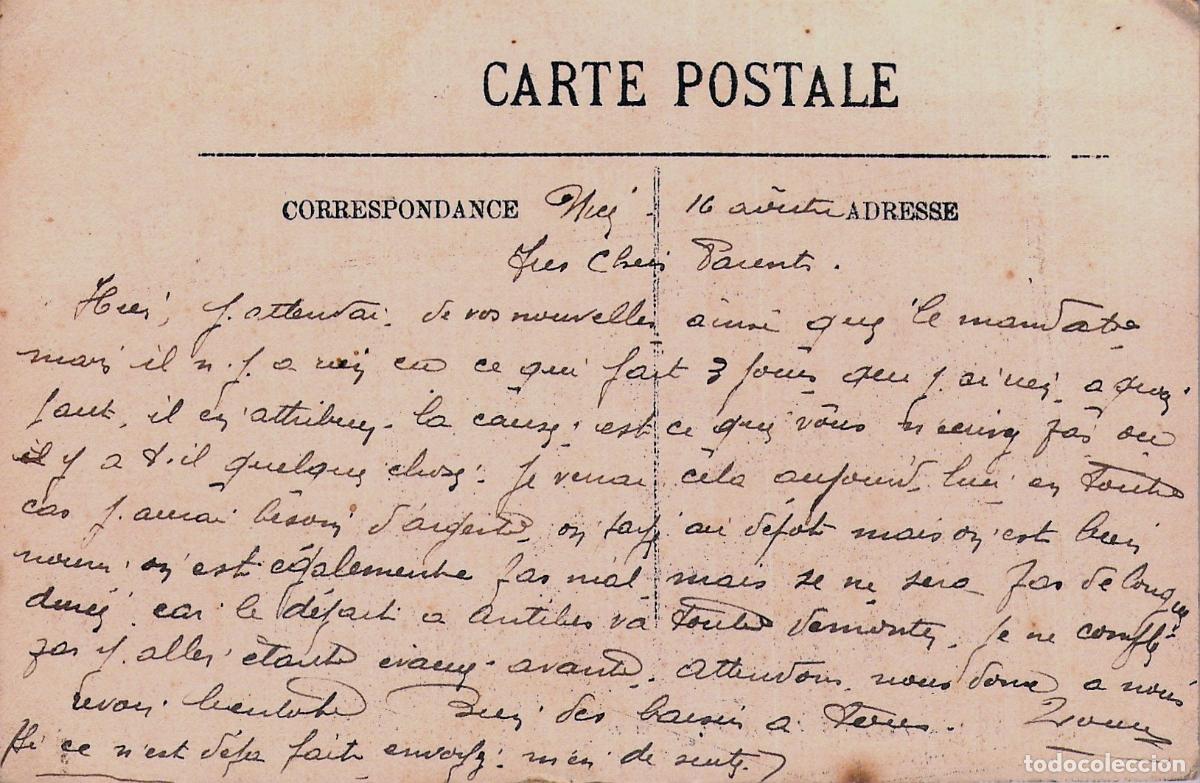 CARTE POSTALE
CORRESPONDANCE 16 ADRESSE
Tres Chers Parents.
Hier, j'attendai de vos nouvelles ainsi que le mandat
mais il n'y a rien eu ce qui fait 3 jours que j'ai rien, a quoi
faut, il en attribuer la cause: est ce que vous n'ecrivez pas ou
il y a t-il quelque chose: Je verrai cela aujourd'hui en tout
cas j'aurai besoin d'argent, on au dépot mais on est bien
nourri on est également pas mal mais se ne sera pas de longue
durée car le départ a Antibes va tout demonter, je ne compte
pas y aller étant evacué avant. attendons nous donc a nous
revoir bientot Bien des baisers a Tous.
(Si ce n'est déja fait envoyez m'en de suite)
todocoleccion